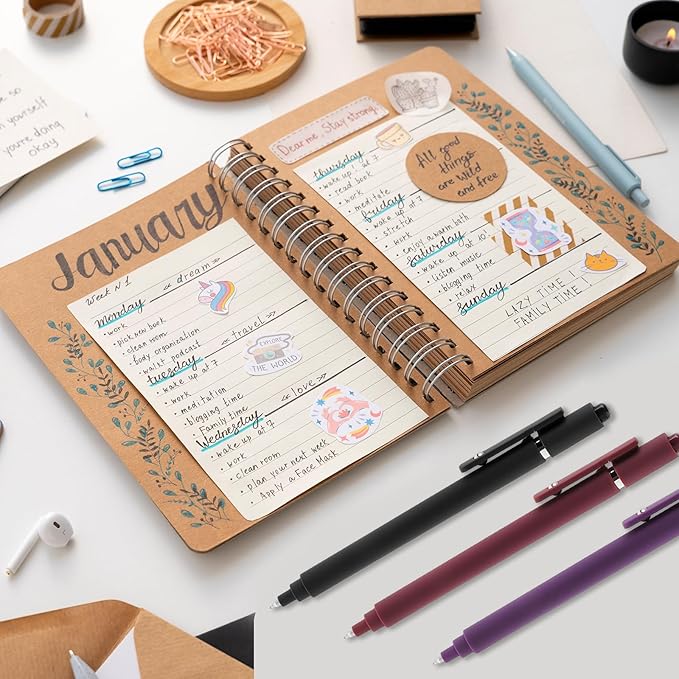 so
n yourself
you're doing
okay
January
Week N1
Monday
<< dream >>
• work
• pick new book
• clean room
• body organization
• walk + podcast
<< travel >>
Tuesday
• wake up at 7
• work
• meditation
• blogging time
• Family time
<< love >>
Wednesday
• wake up at 7
• work
• clean room
• Plan your next week
• Apply a Face Mask
EXPLORE
THE WORLD
Dear me, Stay strong.
Thursday
• wake up! at 7
• read book
• work
• meditate
Friday
• wake up at 7
• stretch
• work
• enjoy a warm bath
Saturday
• wake up at 10!
• listen music
• blogging time
• relax
Sunday
LAZY TIME!
FAMILY TIME!
All good
things
are wild
and free